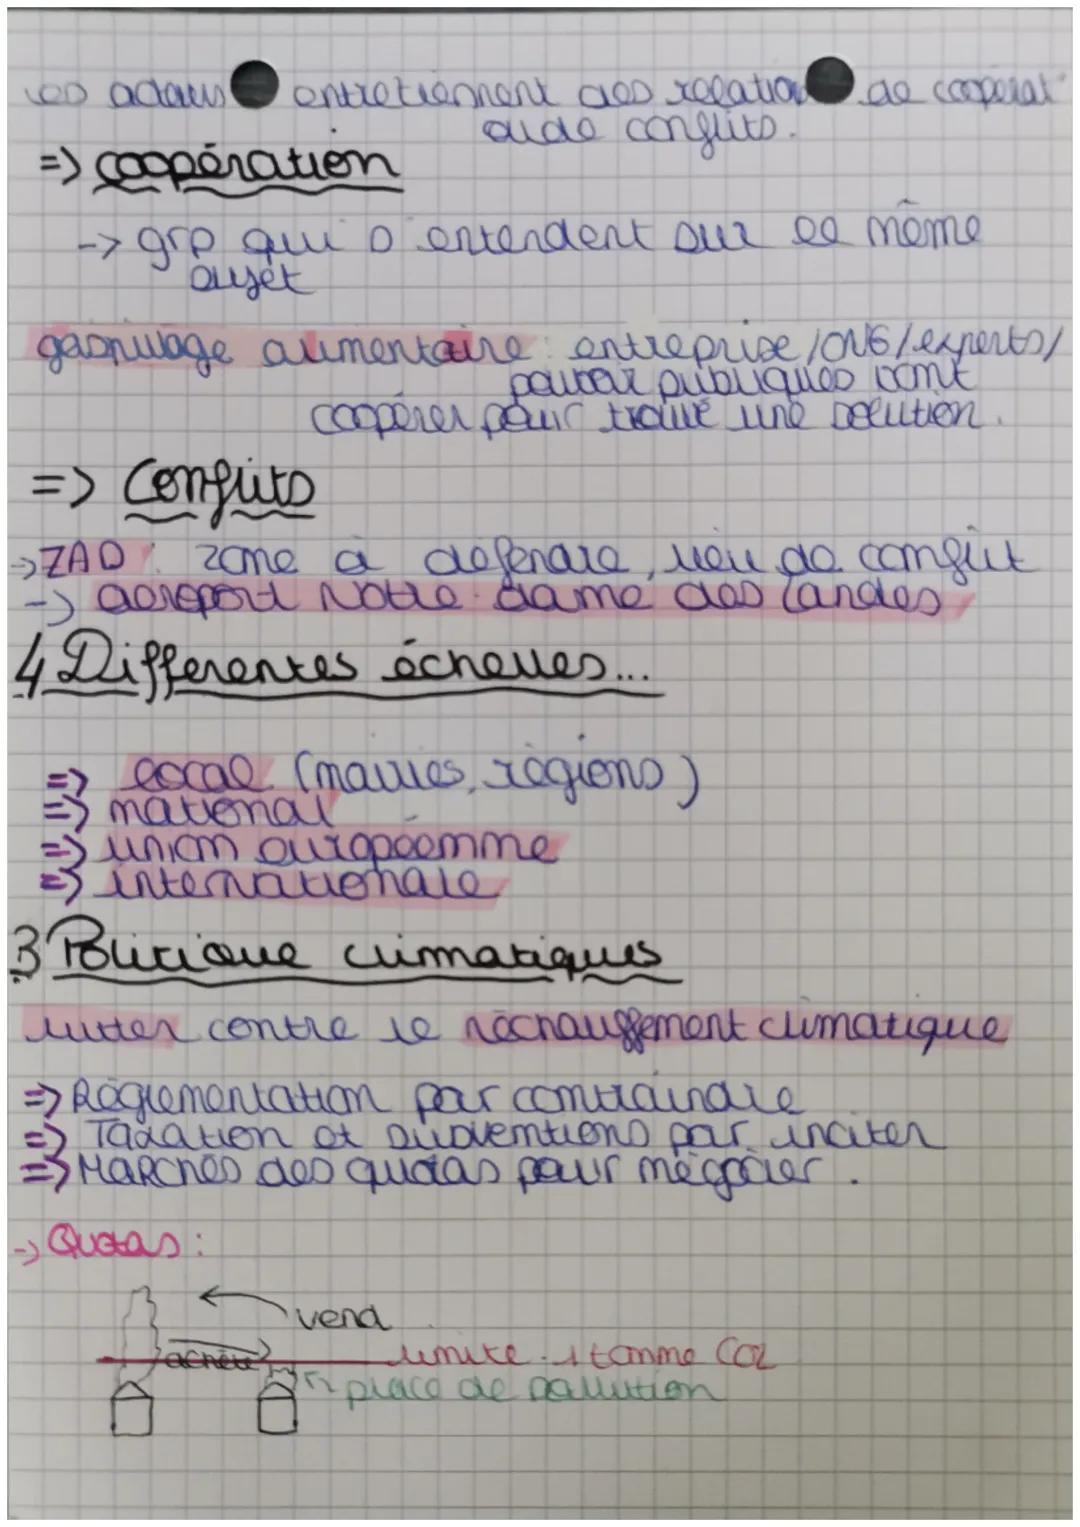 les acteurs entretiennent des relations de coopérat°
ou de conflits.
=> coopération
-> grp qui s'entendent sur le même
sujet
gaspillage alimentaire : entreprise / ONG / experts /
pouvoir publiques vont
coopérer pour trouvé une solution.
=> Conflits
-> ZAD : zone à défendre, lieu de conflit
-> aéroport Notre-dame des Landes
4 Differentes échelles...
=> local (mairies, régions)
=> national
=> union européenne
=> internationale
3 Politique climatiques
lutter contre le réchauffement climatique
=> Réglementation par contraindre
=> Taxation et subventions par inciter
=> Marchés des quotas pour négocier.
-> Quotas :
vend
achète
limite 1 tonne CO2
place de pollution